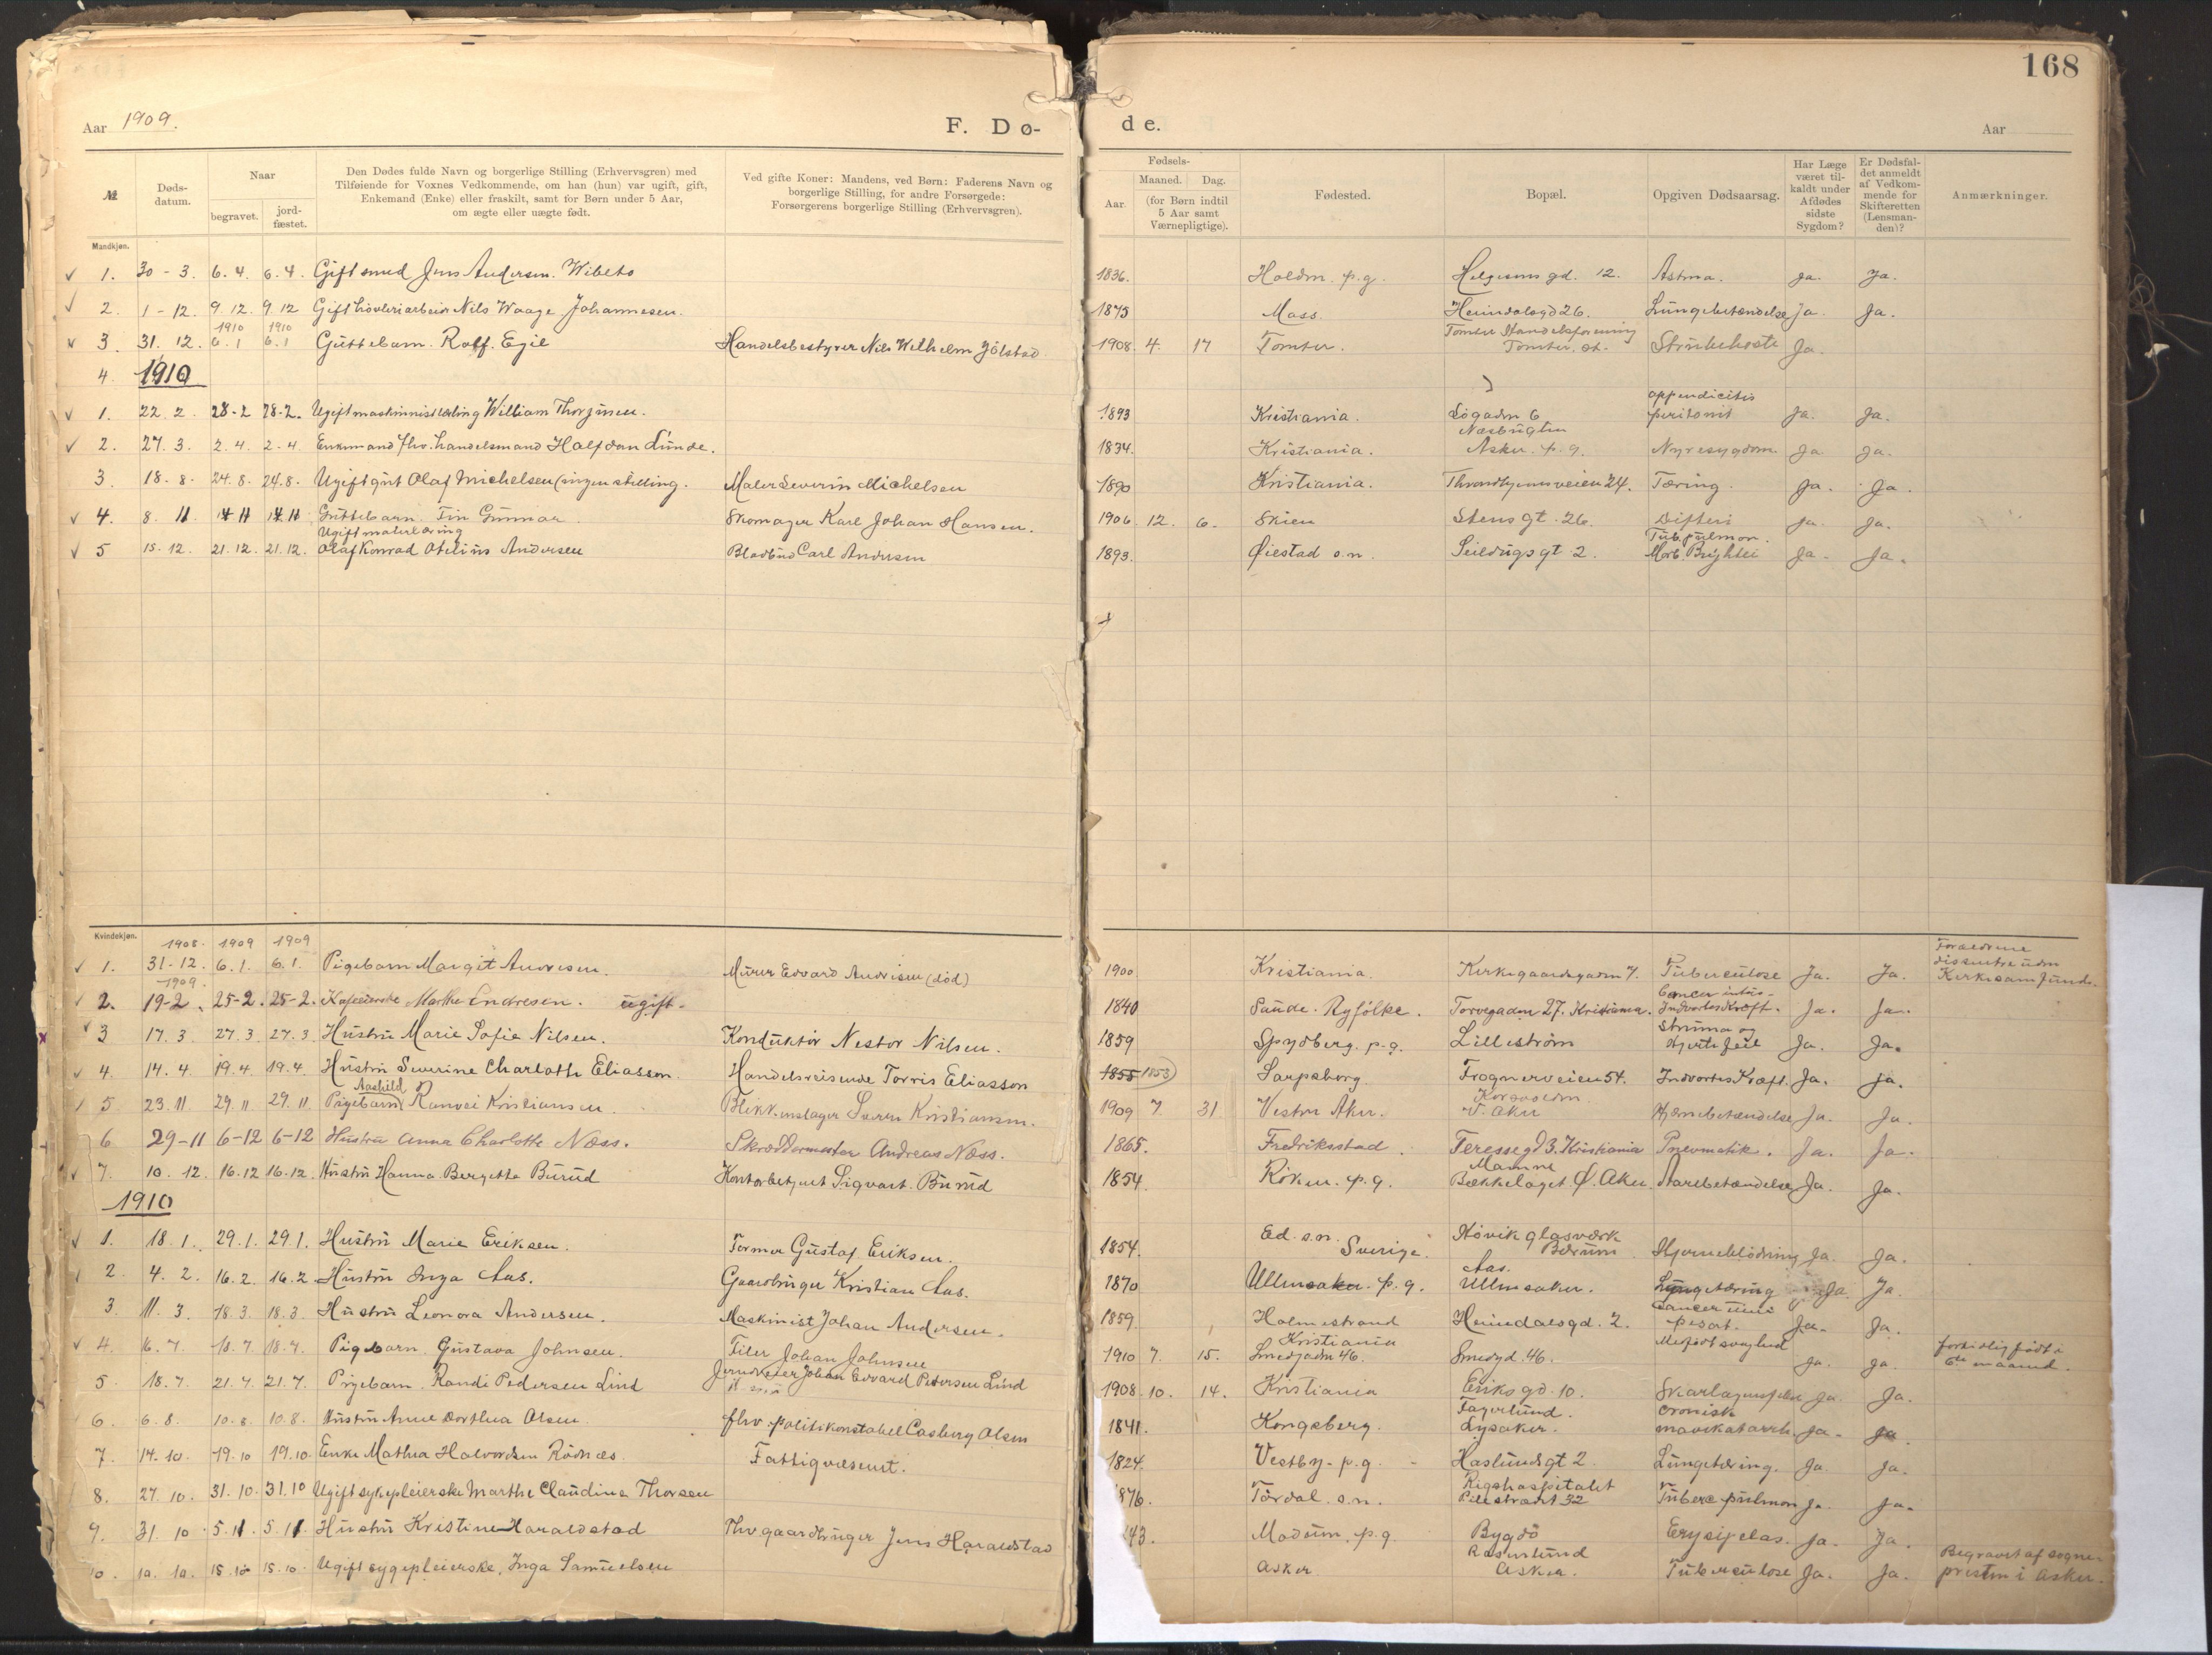 168
Aar 1909.
F. Dø-
de.
Aar
№
Døds-
datum.
Naar
begravet.
jord-
fæstet.
Den Dødes fulde Navn og borgerlige Stilling (Erhvervsgren) med
Tilføiende for Voxnes Vedkommende, om han (hun) var ugift, gift,
Enkemand (Enke) eller fraskilt, samt for Børn under 5 Aar,
om ægte eller uægte født.
Ved gifte Koner: Mandens, ved Børn: Faderens Navn og
borgerlige Stilling, for andre Forsørgede:
Forsørgerens borgerlige Stilling (Erhvervsgren).
Fødsels-
Aar.
Maaned. Dag.
(for Børn indtil
5 Aar samt
Værnepligtige).
Fødested.
Bopæl.
Opgiven Dødsaarsag.
Har Læge
været til-
kaldt under
Afdødes
sidste
Sygdom?
Er Dødsfal-
det anmeldt
af Vedkom-
mende for
Skifteretten
(Lensman-
den)?
Anmærkninger.
Mandkjøn.
1. 30-3. 6.4. 6.4. Gift smed Jens Andersen. Wibeto 1836. Holdm. p.g. Helgesens gd. 12. Astma. Ja. Ja.
2. 1-12. 9.12. 9.12 Gift høvleriarbeider Nils Waage Johannesen. 1875 Moss. Heimdalsgd 26. Lungebetændelse Ja. Ja.
1910 1910
3. 31.12. 6.1 6.1 Guttebarn. Rolf. Egil Handelsbestyrer Nils Wilhelm Jölstad 1908. 4. 17 Tomter. Tomter Handelsforening
Tomter. st. Strubehoste Ja.
4. 1910
1. 22.2. 28-2 28-2. Ugift maskinistlærling William Thorgersen. 1893 Kristiania. Sögadn 6 appendicitis
peritonit Ja. Ja.
2. 27.3. 2.4. 2-4. Enkemand fhv. handelsmand Halfdan Lunde. 1834. Kristiania. Næsbugten
Asker. p.g. Nyresygdom. Ja Ja.
3. 18.8. 24.8. 24.8. Ugift gut Olaf Michelsen (ingen stilling. Maler Severin Michelsen 1890 Kristiania. Throndhjemsveien 24. Tæring. Ja. Ja.
4. 8. 11. 14 11 14 11 Guttebarn Fin Gunnar Skomager Karl Johan Hansen. 1906. 12. 6. Skien Stens gt. 26. Difteri Ja. Ja.
Ugift malerlæring
5 15.12. 21.12. 21.12. Olaf Konrad Otelius Andersen Bladbud Carl Andersen 1893. Øiestad s.n. Seildugsgt 2. Tub. pulmon.
Morb. Brightii Ja. Ja.
Kvindekjøn.
1908. 1909 1909
1. 31-12. 6.1. 6.1. Pigebarn Margit Andresen. Murer Edvard Andresen (död) 1900 Kristiania. Kirkegaardsgadn 7. Tuberculose Ja. Ja. Forældrene
dissentere udm
Kirkesamfund.
1909.
2. 19-2. 25-2. 25-2. Kafeeierske Marthe Endresen. ugift. 1840 Saude. Ryfölke. Torvegadn 27. Kristiania. Cancer intus-
Indvortes Kræft. Ja. Ja.
3 17.3 27.3 27.3 Hustru Marie Sofie Nilsen. Konduktör Nestor Nilsen. 1859 Spydberg. p.g. Lilleström Struma og
Hjertefeil Ja. Ja.
4. 14.4. 19.4. 19.4. Hustru Severine Charlotte Eliasson. Handelsreisende Torris Eliasson 1855 1853 Sarpsborg. Frognerveien 54. Indvortes Kræft. Ja. Ja.
Aashild
5 23.11 29.11 29.11. Pigebarn Ranvei Kristiansen. Blikkenslager Sörn Kristiansen. 1909 7. 31 Vestre Aker. Korsvoldn.
V. Aker Hjernebetændelse Ja. Ja.
6 29-11 6-12 6-12 Hustru Anna Charlotte Næss. Skræddermester Andreas Næss. 1865. Fredriksstad. Teressegd 3. Kristiania Pnevmatik. Ja. Ja.
7. 10.12. 16.12 16.12. Hustru Hanna Bergitte Burud Kontorbetjent Sigvart Burud 1854. Röken. p.g. Bækkelaget Ø. Aker. Aarebetændelse Ja. Ja.
1910
1. 18.1. 29.1. 29.1. Hustru Marie Eriksen. Former Gustaf Eriksen. 1854. Ed. s.n. Sverige. Hövik glasværk
Bærum Hjerneblödning Ja. Ja.
2 4.2. 16.2. 16.2. Hustru Inga Aas. Gaardbruger Kristian Aas. 1870 Ullensaker. p.g. Aas.
Ullensaker. Lungetæring Ja. Ja.
3. 11.3. 18.3. 18.3. Hustru Leonora Andersen. Maskinist Johan Andersen. 1859. Holmestrand Heimdalsgd. 2. Cancer Ja. Ja.
4. 6.7. 18.7. 18.7. Pigebarn. Gustava Johnsen. Filer Johan Johnsen 1910 7. 15. Kristiania
Smedjadn 46. Smedgd. 46. Medfödt svaghed Ja. Ja. fortidlig födt i
6te maaned.
5. 18.7. 21.7. 21.7. Pigebarn. Randi Pedersen Lind Jerndreier Johan Edvard Pedersen Lind 1908. 10. 14. Kristiania Eriks gd. 10. Skarlagensfeber Ja. Ja.
6. 6.8. 10.8. 10.8. Hustru Anne Dorthea Olsen. fhv. politikonstabel Casberg Olsen 1841. Kongsberg. Fagerlund.
Lysaker. cronisk
mavekatarrh Ja. Ja.
7. 14.10. 19.10 19.10. Enke Mathea Halvordsen Rödnæs. Fattigvæsenet. 1824. Vestby. p.g. Haslunds gt 2. Lungetæring. Ja. Ja.
8. 27.10. 31.10. 31.10 Ugift sykepleierske Marthe Claudine Thorsen 1876. Tördal. s.n. Rigshospitalet
Pilestrædet 32 Tuberc pulmon Ja. Ja.
9. 31.10. 5.11. 5.11. Hustru Kristine Haraldstad Fhv gaardbruger Jens Haraldstad 43. Modum. p.g. Bygdö Erysipelas. Ja. Ja.
10. 10.10. 15.10 15.10. Ugift sygepleierske, Inga Samuelsen Asker. Rosenlund
Asker. Tuberculose Ja. Ja. Begravet af sogne-
presten i Asker.